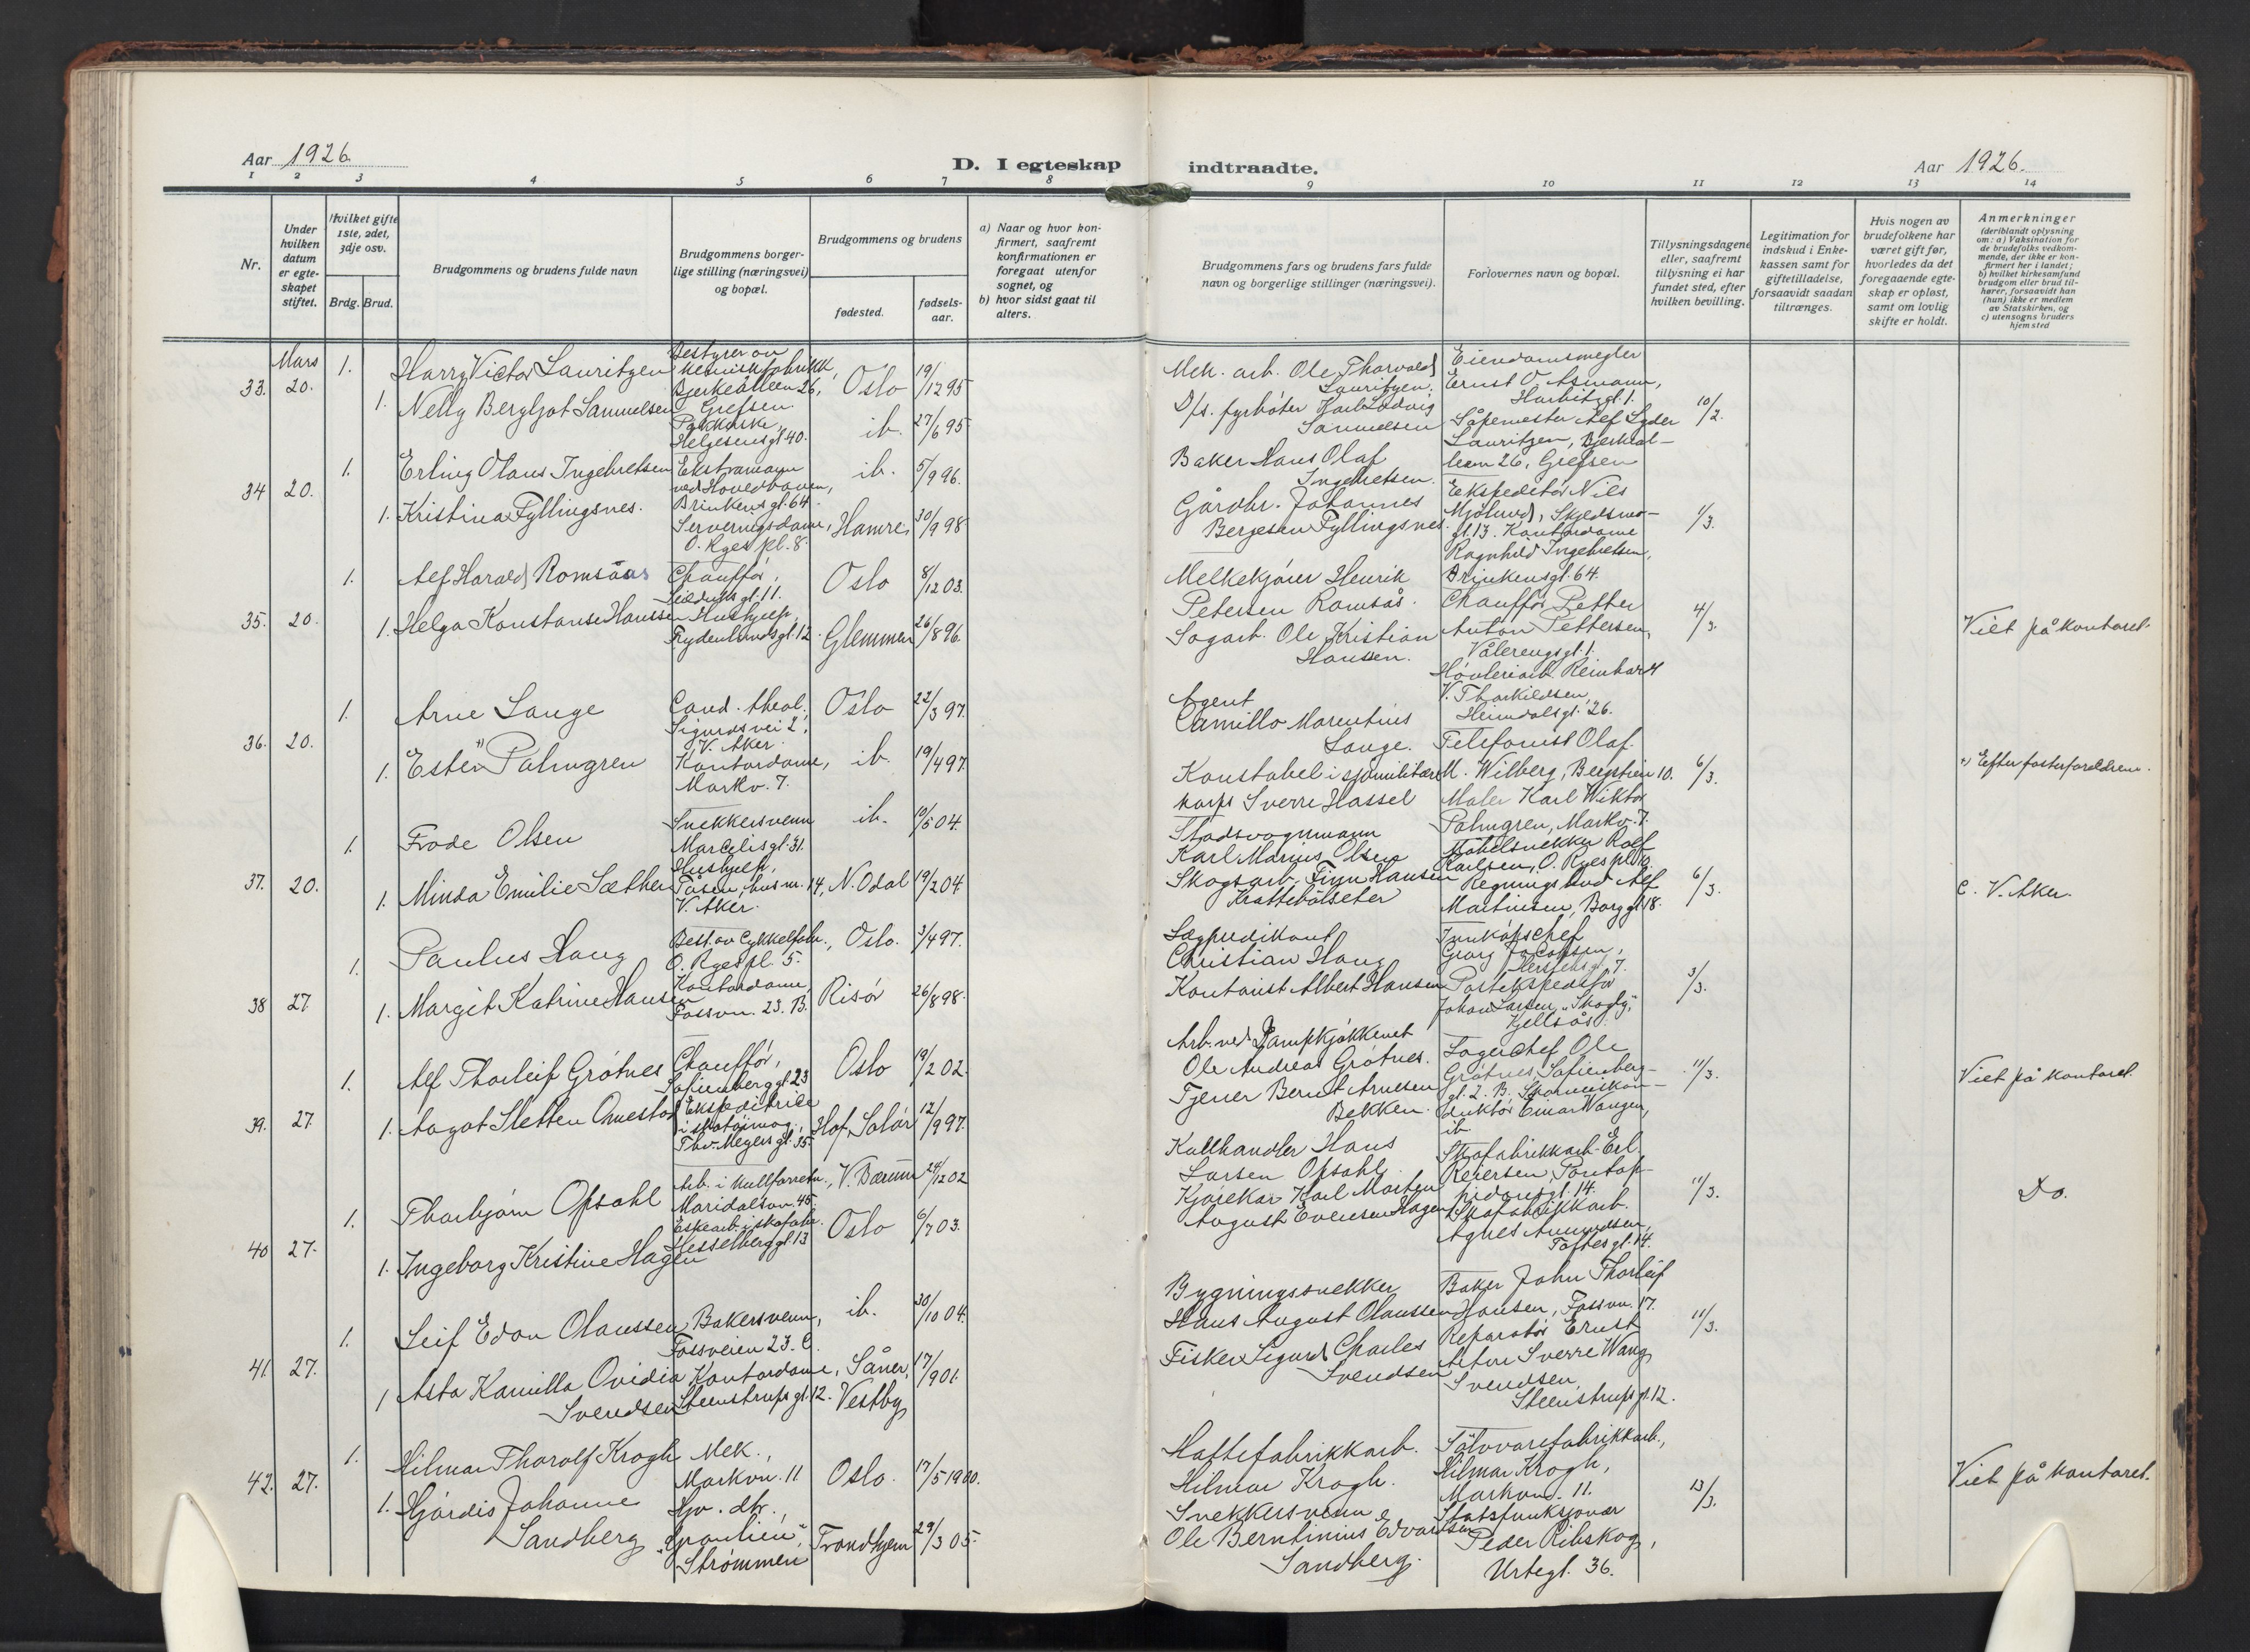 Aar 1926.
D. I egteskap
indtraadte.
Aar 1926.
1 2 3 4 5 6 7 8
9 10 11 12 13 14
Nr.
Under hvilken datum er egteskapet stiftet.
Hvilket gifte 1ste, 2det, 3dje osv.
Brdg. Brud.
Brudgommens og brudens fulde navn
Brudgommens borgerlige stilling (næringsvei) og bopæl.
Brudgommens og brudens
fødested.
fødselsaar.
a) Naar og hvor konfirmert, saafremt konfirmationen er foregaat utenfor sognet, og
b) hvor sidst gaat til alters.
Brudgommens fars og brudens fars fulde navn og borgerlige stillinger (næringsvei).
Forlovernes navn og bopæl.
Tillysningsdagene eller, saafremt tillysning ei har fundet sted, efter hvilken bevilling.
Legitimation for indskud i Enkekassen samt for giftetilladelse, forsaavidt saadan tiltrænges.
Hvis nogen av brudefolkene har været gift før, hvorledes da det foregaaende egteskap er opløst, samt om lovlig skifte er holdt.
Anmerkninger
(deriblandt oplysning om: a) Vaksination for de brudefolks vedkommende, der ikke er konfirmert her i landet;
b) hvilket kirkesamfund brudgom eller brud tilhører, forsaavidt han (hun) ikke er medlem av Statskirken, og
c) utensogns bruders hjemsted
Mars
33. 20. 1. Harry Victor Lauritzen
Bestyrer av kemiskfabrikk, Bjerkealleen 26, Grefsen.
Oslo 19/12 95
1. Nelly Bergljot Samuelsen
Pakkerske, Helgesensgt 40.
ib. 27/6 95
Mek. arb. Ole Thorvald Lauritzen.
D/s. fyrbøter Karl Ludvig Samuelsen
Eiendomsmegler Ernst O. Asmann, Harbitzgt. 1.
Såpemester Alf Lyder Lauritzen, Bjerkealleen 26, Grefsen
10/2.
34 20. 1. Erling Olaus Ingebretsen
Ekstramann ved Hovedbanen, Brinkensgt. 64.
ib. 5/9 96.
1. Kristina Fyllingsnes.
Serveringsdame, O. Ryes pl. 8.
Hamre 30/9 98
Baker Hans Olaf Ingebretsen.
Gårdbr. Johannes Bergesen Fyllingsnes.
Ekspeditør Nils Mjølund, Skedsmogt. 13. Kontordame Ragnhild Ingebretsen, Brinkensgt. 64.
1/3.
35. 20. 1. Alf Harald Romsaas
Chauffør, gt. 11.
Oslo 8/12 03.
1. Helga Konstanse Hanssen
Hushjelp, Frydenlundsgt. 12.
Glemmen 26/8 96.
Melkekjører Henrik Petersen Romsås.
Sagarb. Ole Kristian Hanssen.
Chauffør Petter Anton Pettersen, Vålerengsgt. 1.
Høvleriarb. Reinhardt V. Thorkildsen, Heimdalsgt. 26.
4/3.
Viet på kontoret.
36. 20. 1. Arne Lange
Cand. theol., Sigurdsvei 2, V. Aker.
Oslo 22/3 97.
1. Ester +) Palmgren
Kontordame, Markv. 7.
ib. 19/4 97
Agent Camillo Marentius Lange.
Konstabel i sjømilitære korps Sverre Hassel
Telefonist Olaf M. Wilberg, Bergstien 10.
Maler Karl Wiktor Palmgren, Markv. 7.
6/3.
+) Efter fosterforeldrene.
37. 20. 1. Frode Olsen
Snekkersvenn Marcelisgt. 31.
ib. 10/5 04.
1. Minda Emilie Sæther
Hushjelp, Tåsen, husnr. 14, V. Aker.
N. Odal 19/2 04
Stadsvognmann Karl Marius Olsen
Skogsarb. Finn Hansen Krattebølseter
Møbelsnekker Rolf Karlsen, O. Ryes pl. 10.
Regningsbud Alf Martinsen, Borggt. 18.
6/3.
c. V. Aker.
38 27 1. Paulus Haug
Best. av cykkelfabr., O. Ryes pl. 5.
Oslo. 3/4 97.
1. Margit Katrine Hansen
Kontordame, Fossvn. 23. B.
Risør 26/8 98.
Lægpredikant Christian Haug
Kontorist Albert Hansen
Innkjøpschef Georg Jacobsen,
Postekspeditør Johan Larsen, "Skogly", Kjellsås.
3/3.
39. 27. 1. Alf Thorleif Grøtnes
Chauffør, Sofienberggt. 23
Oslo 19/2 02.
1. Aagot Sletten Omestad
Ekspeditrise i skotøimag., Thv. Meyers gt. 35.
Hof, Solør 12/9 97.
Arb. ved Dampkjøkkenet Ole Andreas Grøtnes.
Tjener Bernt Arnesen Bekken.
Lagerchef Ole Grøtnes, Sofienberggt. 2. B, Einar Wangen, ib.
11/3.
Viet på kontoret.
40 27. 1. Thorbjørn Opsahl
Arb. i kullforretn., Maridalsvn. 45.
V. Bærum 24/12 02
1. Ingeborg Kristine Hagen
Eskearb. i skofabr. Hesselberggt. 13
Oslo 6/7 03.
Kullhandler Hans Larsen Opsahl.
Kjørekar Karl Morten August Evensen Hagen
Skofabrikkarb. Erl. Reiersen, Pontoppidansgt. 14.
Skofabrikkarb. Agnes Amundsen, Toftesgt. 14.
11/3.
Do.
41. 27. 1. Leif Edon Olaussen
Bakersvenn, Fossveien 23. C.
ib. 30/10 04.
1 Asta Kamilla Ovidia Svendsen
Kontordame, Steenstrupsgt. 12.
Såner, Vestby 17/9 01.
Bygningssnekker Hans August Olaussen
Fisker Sigurd Charles Svendsen
Baker John Thorleif Hansen, Fossvn. 17.
Reparatør Ernst Arton Sverre Wang Svendsen, Steenstrupsgt. 12.
11/3.
42. 27. 1. Hilmar Thorolf Krogh
Mek., Markvn. 11
Oslo. 17/5 1900.
1. Hjørdis Johanne Sandberg
Hjv. dtr., Strømmen
Trondhjem 29/3 05.
Hattefabrikkarb. Hilmar Krogh.
Snekkersvenn Ole Berntinius Edvardsen Sandberg.
Sølvvarefabrikkarb., Hilmar Krogh, Markvn. 11.
Statsfunksjonær Peder Ribskog, Urtegt. 36.
13/3.
Viet på kontoret.